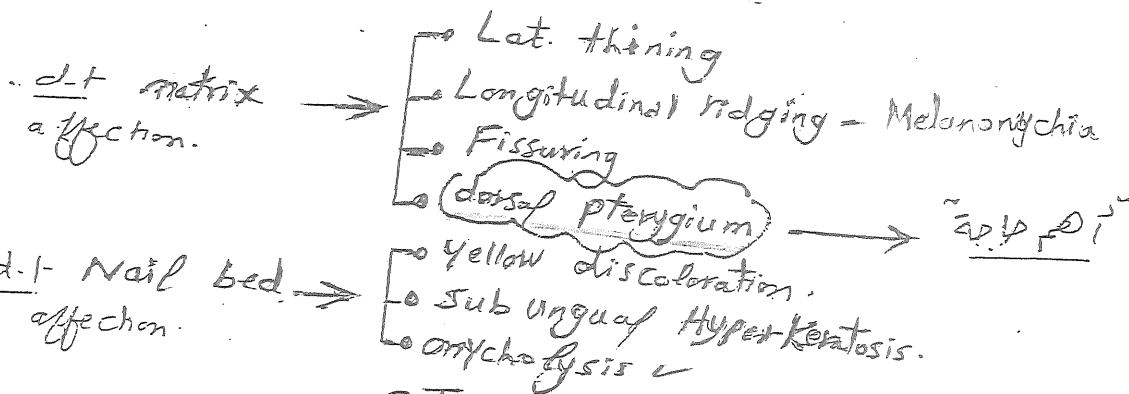 d.t matrix
affection.
Lat. thining
Longitudinal ridging - Melanonychia
Fissuring
dorsal pterygium
d.t Nail bed
affection.
Yellow discoloration.
Sub ungual Hyperkeratosis.
onycholysis ✓